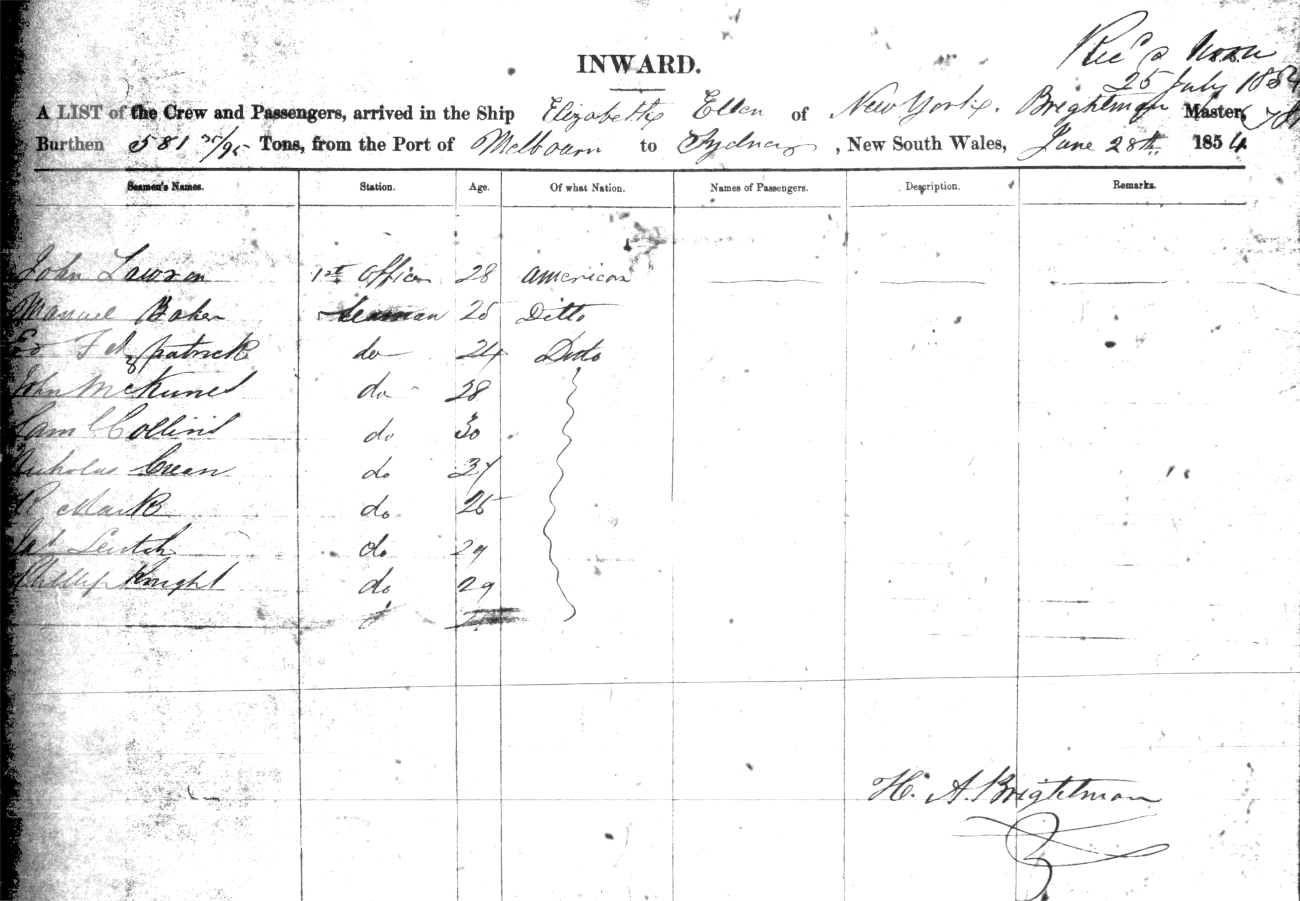 Rec'd Noon
25 July 1854
INWARD.
A LIST of the Crew and Passengers, arrived in the Ship Elizabeth Ellen of New York. Brightman Master,
Burthen 581 Tons, from the Port of Melbourn to Sydney, New South Wales, June 28th 1854
Seamen's Names. Station. Age. Of what Nation. Names of Passengers. Description. Remarks.
John 1st Officer 28 American
Manuel Baker Seaman 25 Ditto
Fitzpatrick do 24 Ditto
John do 28
Saml Collins do 30
Nicholas Crean do
R Mark do 25
Leitch do 29
Phillip Knight do 29
H. A. Brightman